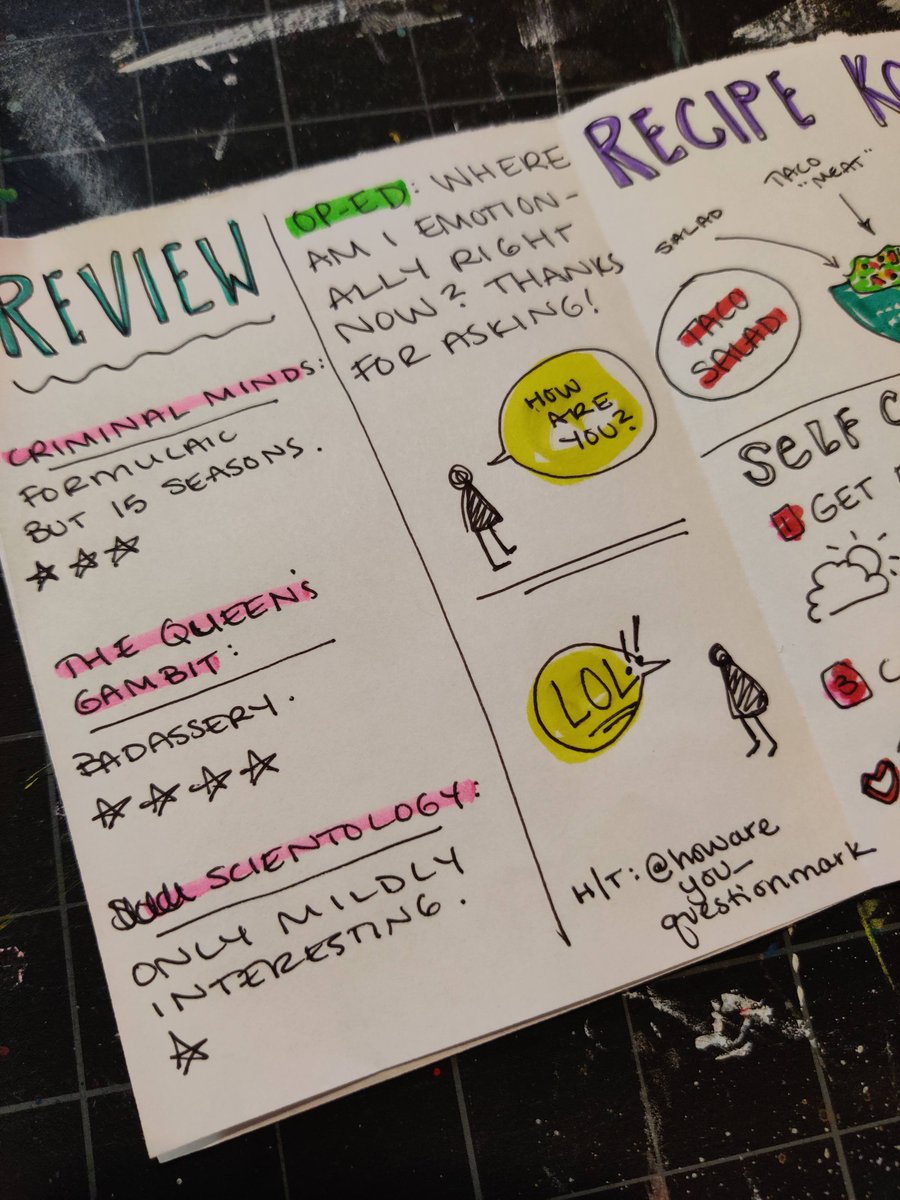 REVIEW
CRIMINAL MINDS:
FORMULAIC
BUT 15 SEASONS.
THE QUEEN'S
GAMBIT:
BADASSERY.
SCIENTOLOGY:
ONLY MILDLY
INTERESTING.
OP-ED: WHERE
AM I EMOTION-
ALLY RIGHT
NOW? THANKS
FOR ASKING!
HOW
ARE
YOU?
LOL!!
H/T: @howare
you_
questionmark
RECIPE
SALAD
TACO
"MEAT"
TACO
SALAD
SELF
1 GET
3